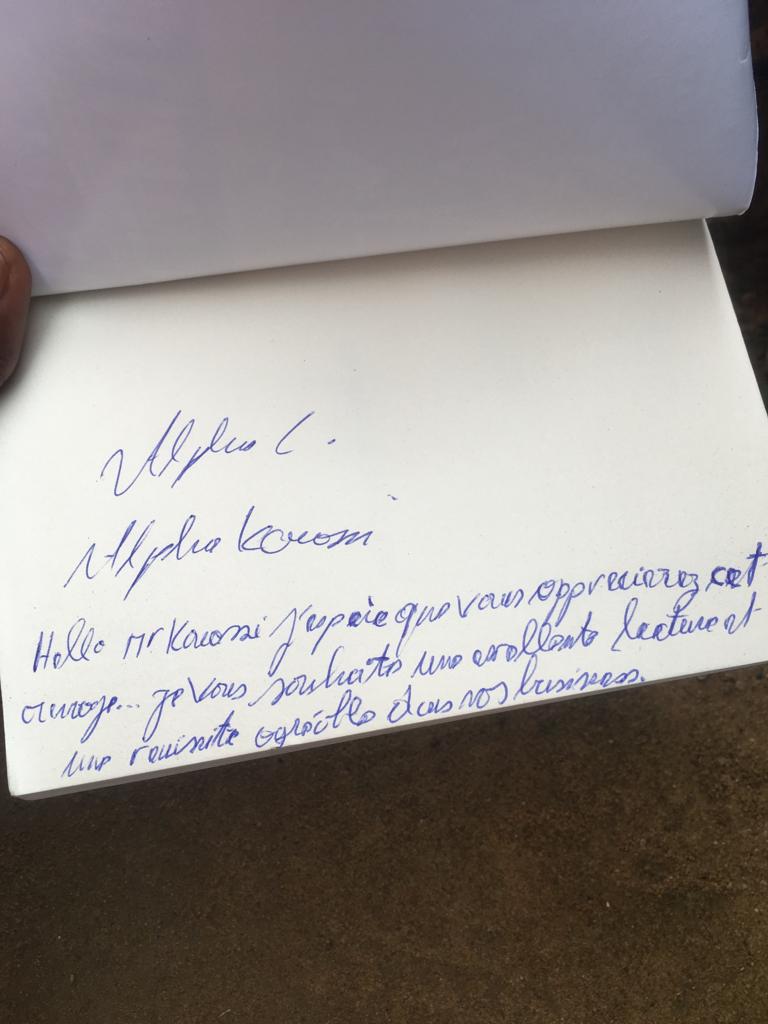 Alpha C.
Alpha Kouossi
Hello Mr Kouossi j'espère que vous apprecierez cet
ouvrage... je vous souhaite une excellente lecture et
une reussite agréable dans vos business.